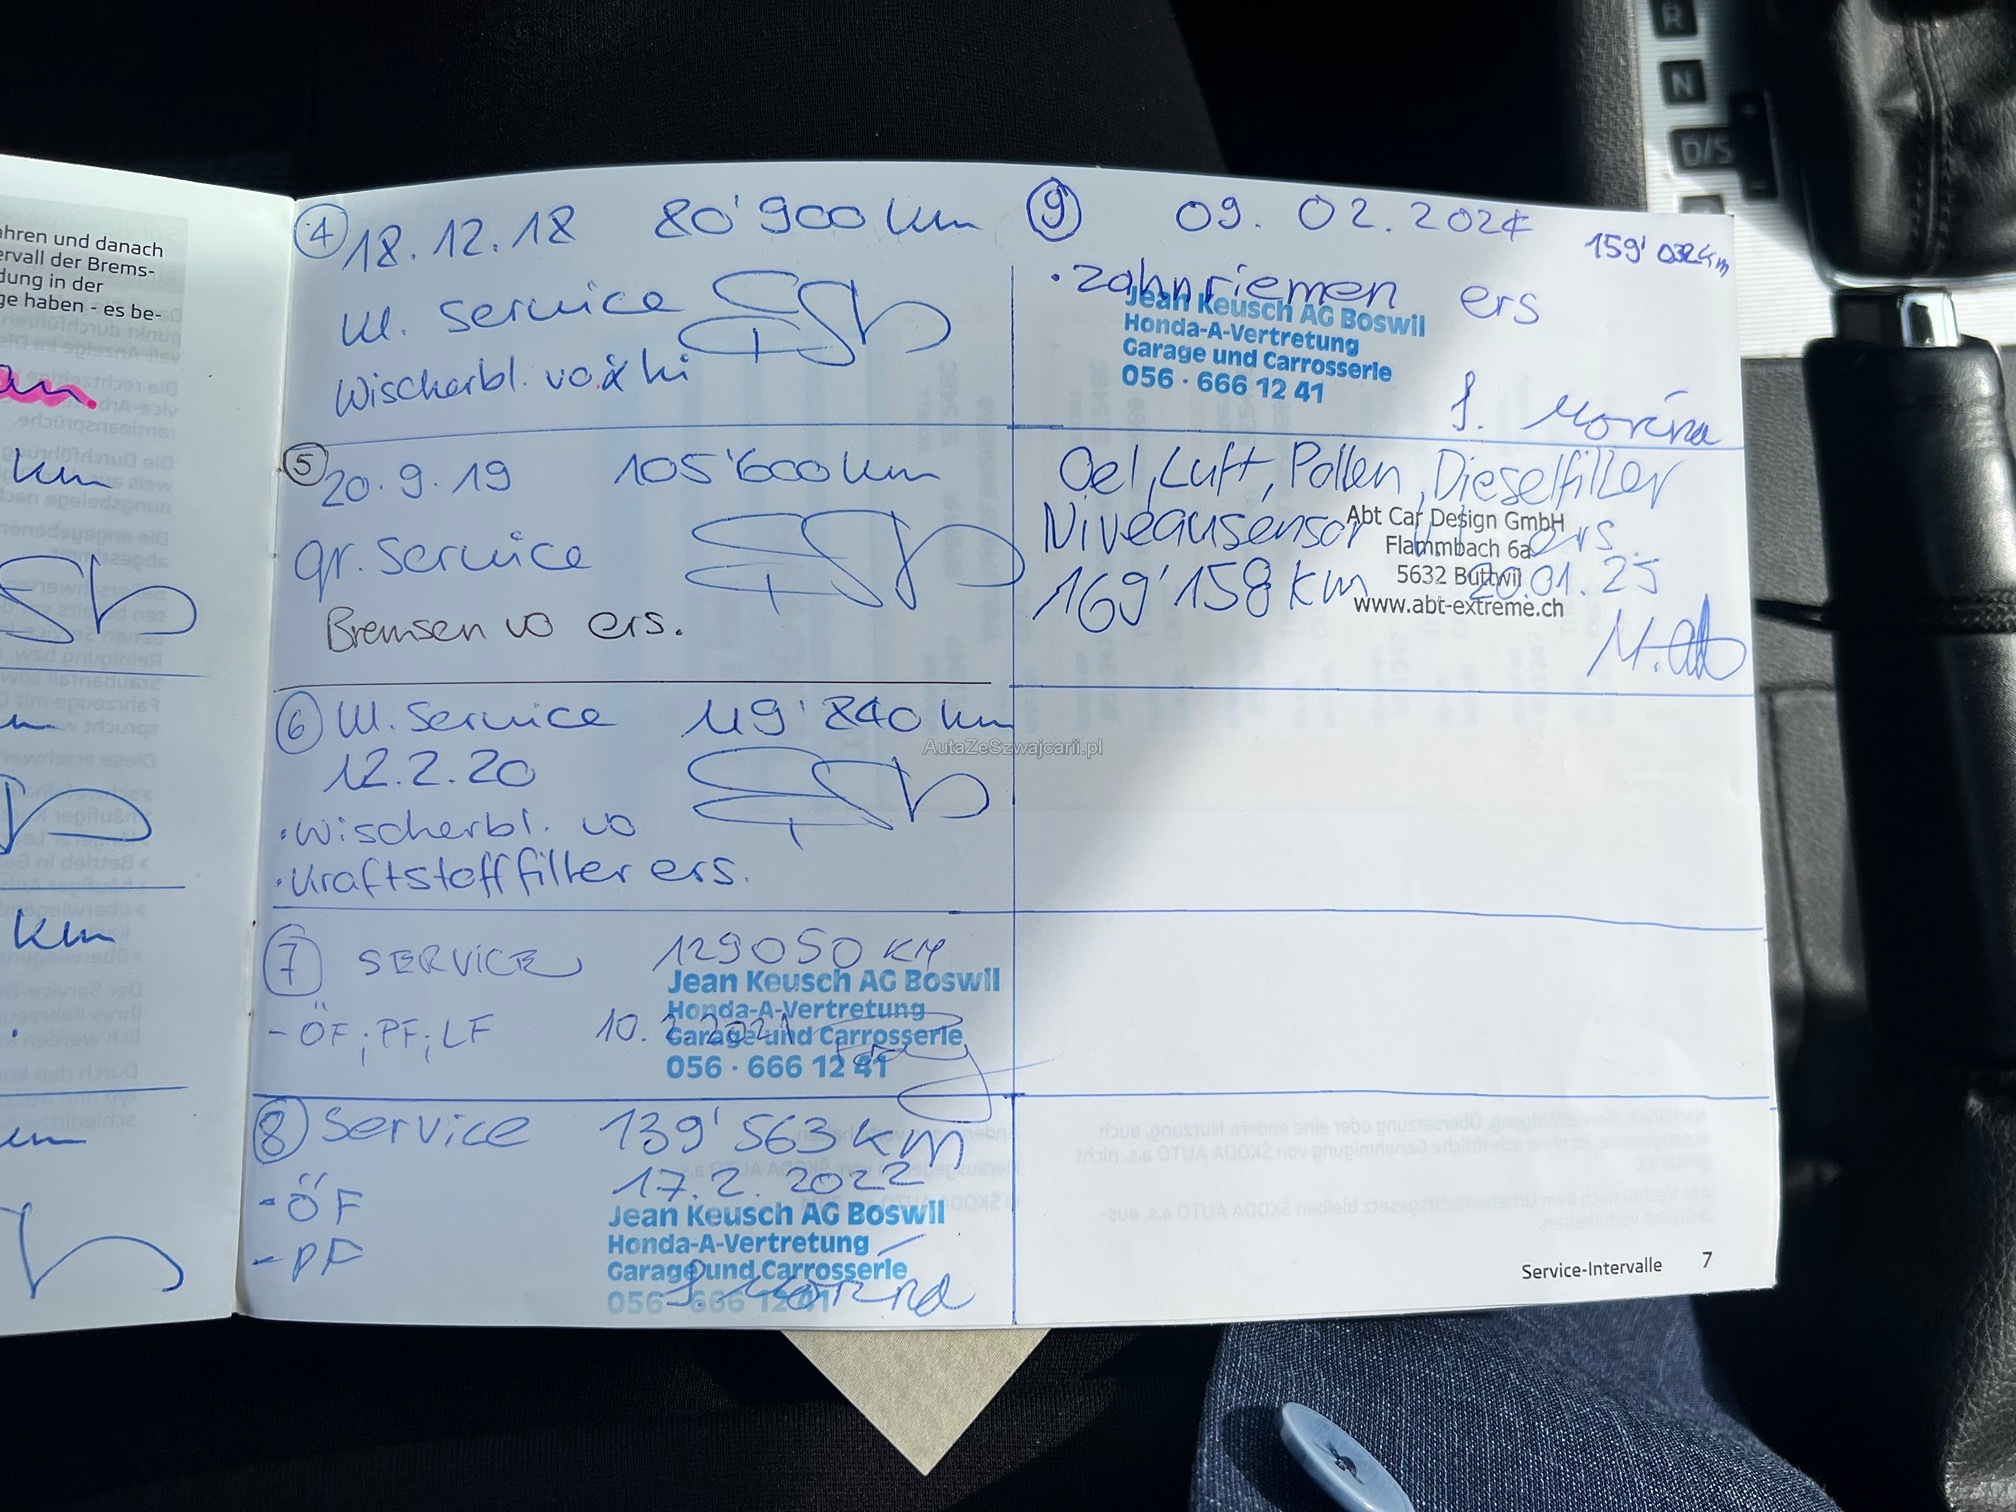 ahren und danach
ervall der Brems-
dung in der
ge haben - es be-
km
km
④ 18.12.18 80'900 km
kl. Service
Wischerbl. vo & hi
⑤ 20.9.19 105'600 km
gr. Service
Bremsen vo ers.
⑥ kl. Service 119'840 km
12.2.20
• Wischerbl. vo
• Kraftstofffilter ers.
⑦ SERVICE 129050 KM
Jean Keusch AG Boswil
Honda-A-Vertretung
- ÖF; PF; LF 10.2.2021
Garage und Carrosserie
056 · 666 12 41
⑧ Service 139'563 km
17.2.2022
- ÖF
Jean Keusch AG Boswil
Honda-A-Vertretung
- PF
Garage und Carrosserie
056 666 12 41
S. Morina
⑨ 09.02.2024
159'032 km
• Zahnriemen ers
Jean Keusch AG Boswil
Honda-A-Vertretung
Garage und Carrosserie
056 · 666 12 41
S. Morina
Oel, Luft, Pollen, Dieselfilter
Niveausensor ers.
169'158 km 20.01.25
Abt Car Design GmbH
Flammbach 6a
5632 Buttwil
www.abt-extreme.ch
M. Abt
AutaZeSzwajcarii.pl
Service-Intervalle 7
R
N
D/S
+
-